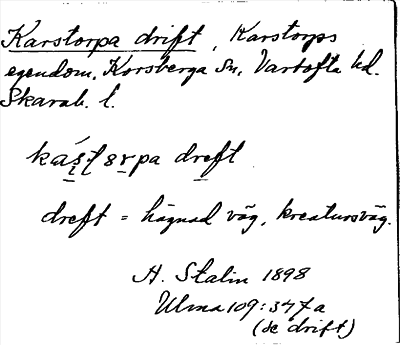 Karstorpa drift, Karstorps
egendom, Korsberga Sn, Vartofta hd.
Skarab. l.
kas̨tsrpa dreft
dreft = hägnad väg, kreatursväg.
A. Stalin 1898
Ulma 109:347a
(se drift)